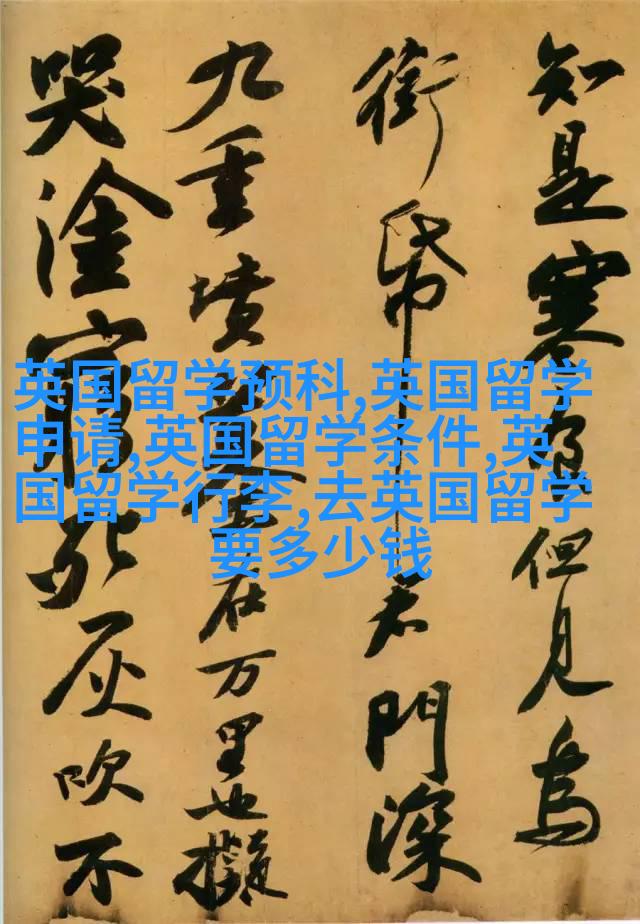 英国留学预科,英国留学
申请,英国留学条件,英
国留学行李,去英国留学
要多少钱
知是寒食但見烏
銜帋君門深
九重墳墓在万里也擬
哭塗窮死灰吹不